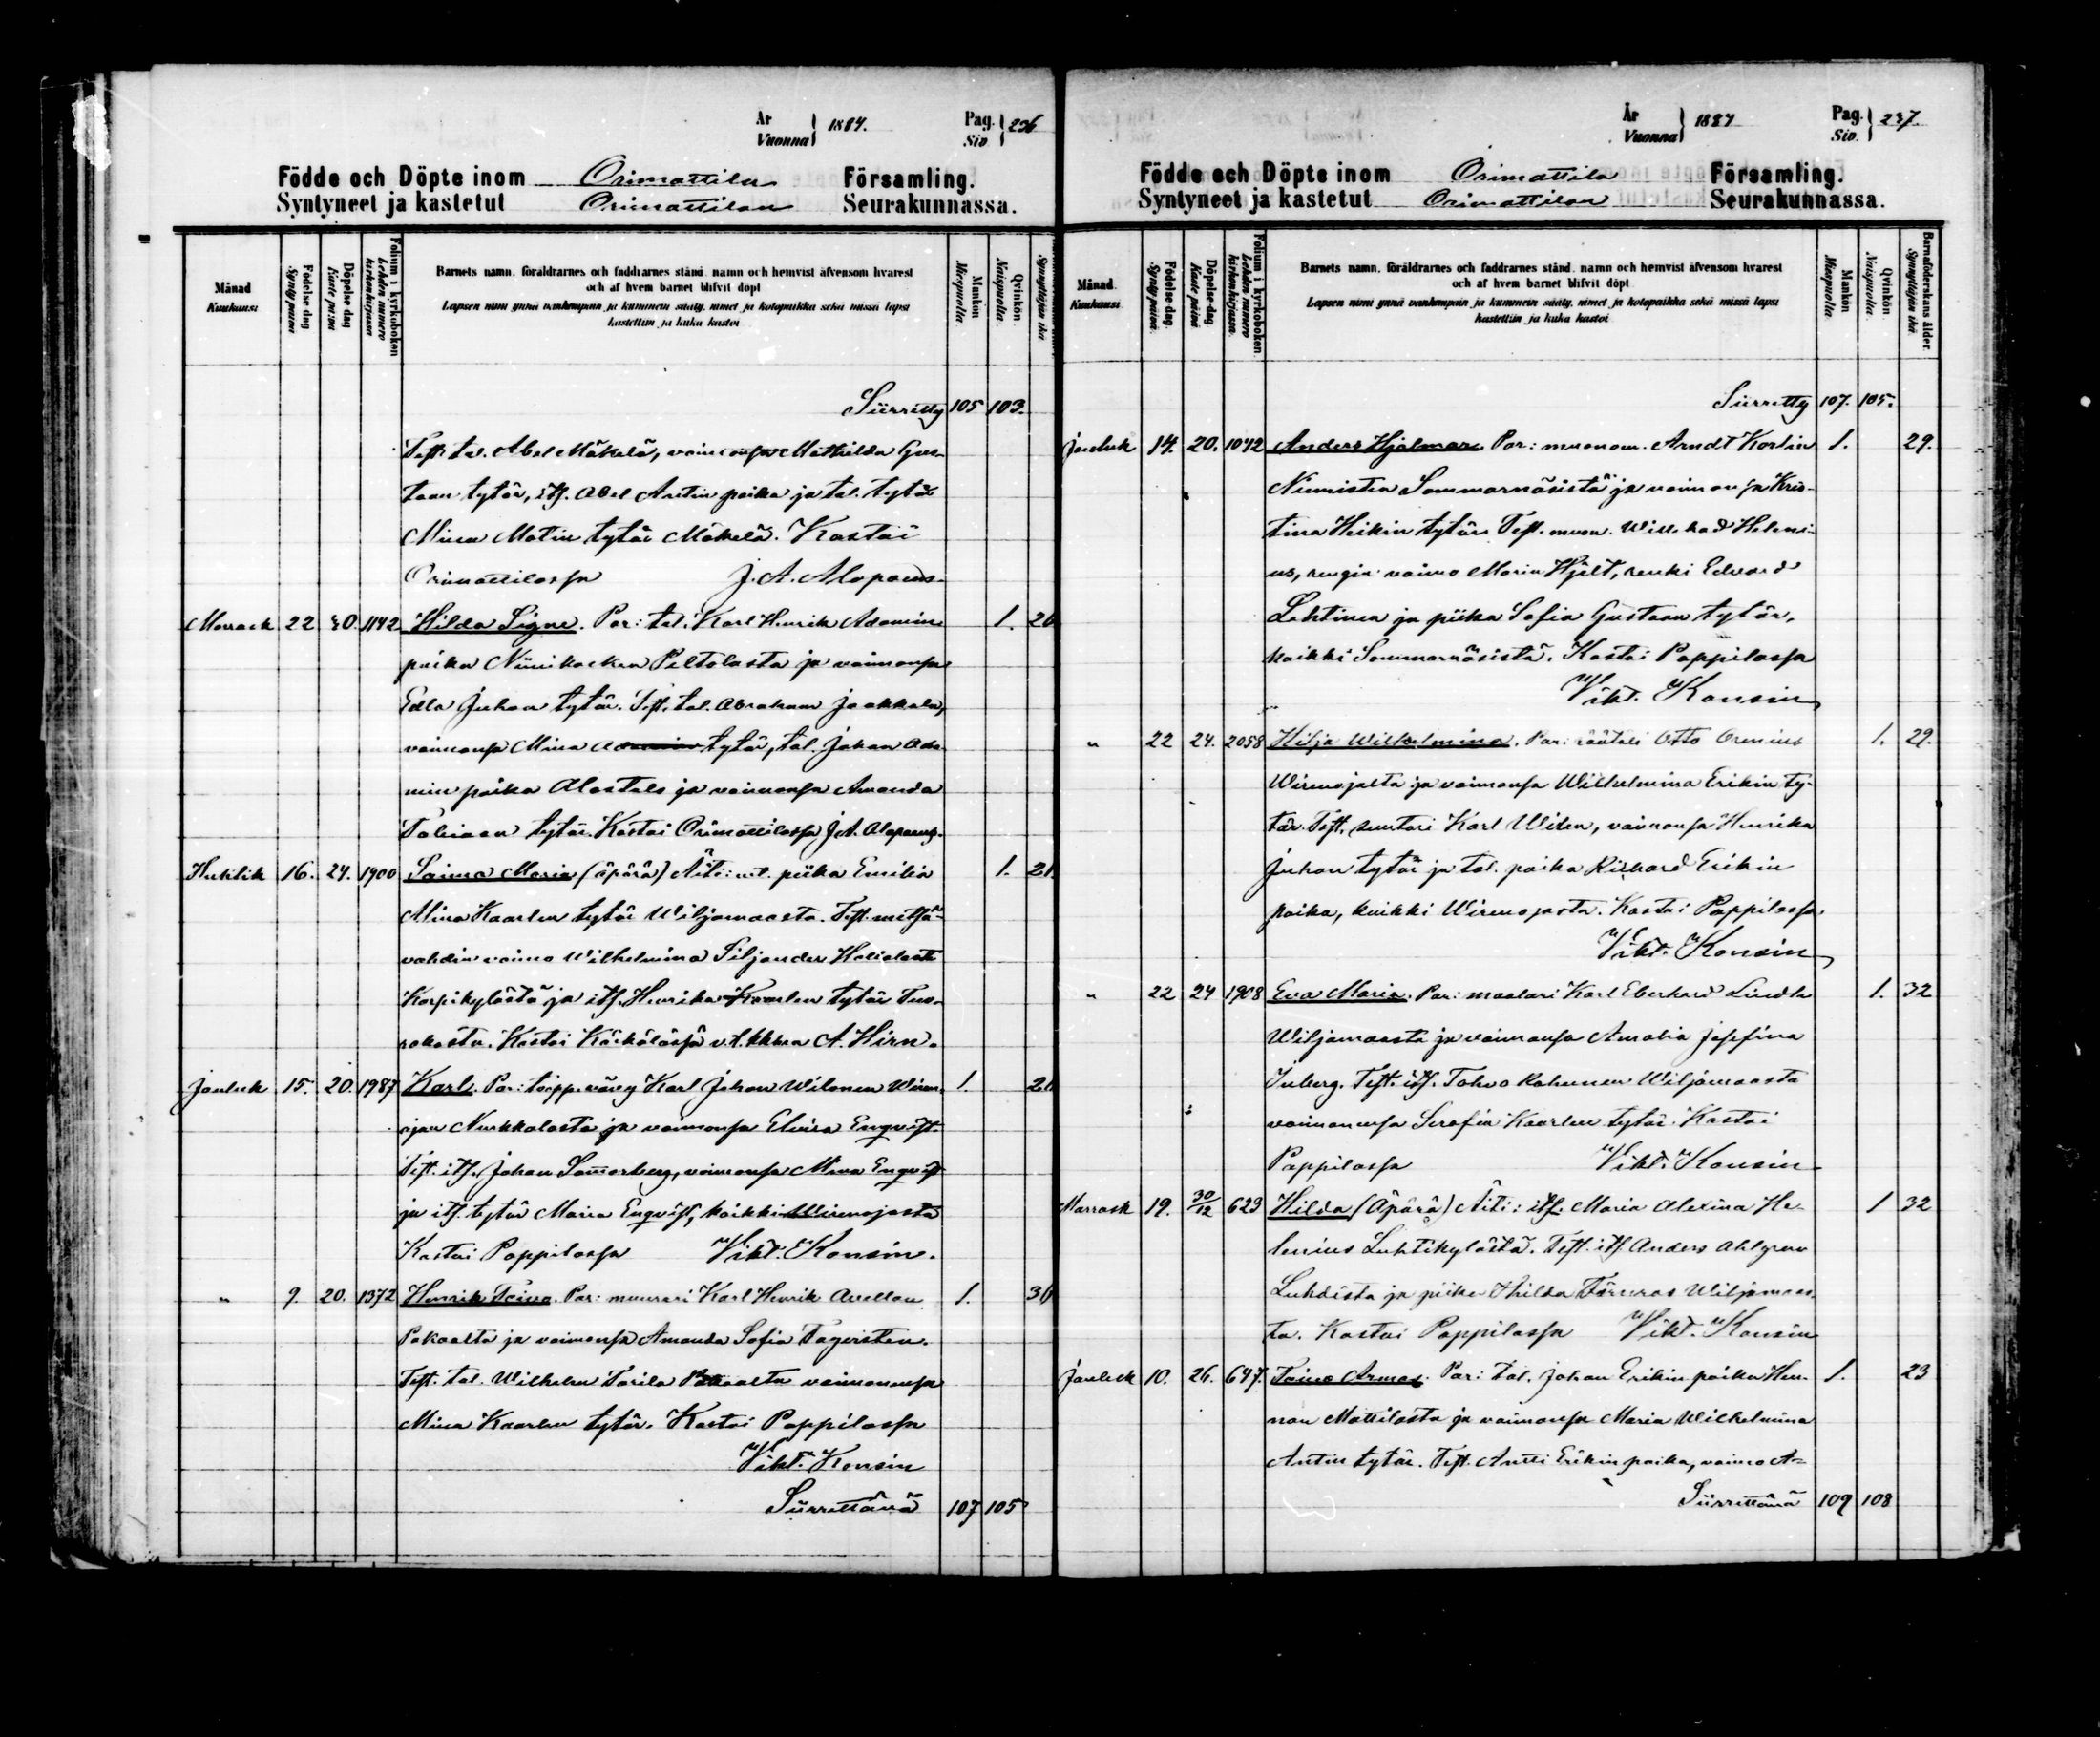 År
Vuonna } 1884.
Pag.
Siv. } 236
Födde och Döpte inom Orimattila Församling.
Syntyneet ja kastetut Orimattilan Seurakunnassa.
Månad
Kuukausi
Födelse dag
Synty päivä
Döpelse dag
Kaste päivä
Folium i kyrkoboken
Lehden numero kirkonkirjassa
Barnets namn, föräldrarnes och faddrarnes stånd, namn och hemvist äfvensom hvarest
och af hvem barnet blifvit döpt
Lapsen nimi ynnä vanhempain ja kummein sääty, nimet ja kotopaikka sekä missä lapsi
kastettiin ja kuka kastoi
Mankön
Miespuolia
Qvinkön
Naispuolia
Synyttäjän ikä
Siirretty 105 103.
Test. tal. Abel Mäkelä, vaimonsa Mathilda Gus-
taan tytär, its. Abel Antin poika ja tal. tytär
Mina Matin tytär Mäkelä. Kastoi
Orimattilassa J. A. Alopaeus.
Marrask 22 30. 1142 Hilda Signe. Par: tal. Karl Henrik Adamin 1. 20
poika Niinikosken Peltolasta ja vaimonsa
Edla Juhan tytär. Test. tal. Abraham Jaakkola,
vaimonsa Mina tytär, tal. Johan Ada-
min poika Alastalo ja vaimonsa Amanda
tytär. Kastoi Orimattilassa J. A. Alopaeus.
Huhtik 16. 24. 1900 Saima Maria (äpärä) Äiti: piika Emilia 1. 21.
Mina Kaarlen tytär Wiljamaasta. Test. metsä-
vahdin vaimo Wilhelmina Siljander
Korpikylästä ja its. Henrika Kaarlen tytär
Kastoi Kärkölässä v.t. kkhra A. Hirn.
Jouluk 15. 20. 1987 Karl. Par: torpp. vävy Karl Johan Wilonen Wiren- 1. 26
ojan Nurkkalasta ja vaimonsa Elvira Enqvist.
Test. its. Johan Sommerberg, vaimonsa Mina Enqvist
ja its. tytär Maria Enqvist, kaikki Wirenojasta
Kastoi Pappilassa Vikt. Konsin.
" 9. 20. 1372 Henrik Toivo. Par: muurari Karl Henrik Avellan 1. 30
Pakaalta ja vaimonsa Amanda Sofia Fagersten.
Test. tal. Wilhelm Torila Pakaalta vaimonensa
Mina Kaarlen tytär. Kastoi Pappilassa
Vikt. Konsin
Siirrettävä 107 105
År
Vuonna } 1884
Pag.
Siv. } 237.
Födde och Döpte inom Orimattila Församling.
Syntyneet ja kastetut Orimattilan Seurakunnassa.
Månad.
Kuukausi
Födelse dag.
Synty päivä.
Döpelse dag.
Kaste päivä.
Folium i kyrkoboken.
Lehden numero kirkonkirjassa.
Barnets namn, föräldrarnes och faddrarnes stånd, namn och hemvist äfvensom hvarest
och af hvem barnet blifvit döpt.
Lapsen nimi ynnä vanhempain ja kummein sääty, nimet ja kotopaikka sekä missä lapsi
kastettiin ja kuka kastoi
Mankön
Miespuolia.
Qvinkön
Naispuolia.
Barnaföderskans ålder.
Synyttäjän ikä
Siirretty 107. 105.
Jouluk 14. 20. 1042 Anders Hjalmar. Par: muonam. Arndt Korlin 1. 29.
Niemisten Sommarnäsistä ja vaimonsa Kris-
tina Heikin tytär. Test. muon. Willehad Heleni-
us, rengin vaimo Maria Hjelt, renki Edvard
Lehtinen ja piika Sofia Gustaan tytär,
kaikki Sommarnäsistä. Kastoi Pappilassa
Vikt. Konsin
" 22 24. 2058 Hilja Wilhelmina. Par: räätäli Otto Orenius 1. 29.
Wirenojalta ja vaimonsa Wilhelmina Erikin ty-
tär. Test. suutari Karl Wiren, vaimonsa Henrika
Juhan tytär ja tal. poika Richard Erikin
poika, kaikki Wirenojasta. Kastoi Pappilassa.
Vikt. Konsin
" 22 24 1908 Eva Maria. Par: maalari Karl Eberhard Lindla 1. 32
Wiljamaasta ja vaimonsa Amalia Josefina
Inberg. Test. its. Tahvo Rahunen Wiljamaasta
vaimonensa Serafia Kaarlen tytär. Kastoi
Pappilassa Vikt. Konsin
Marrask 19. 30/12 623 Hilda (Äpärä) Äiti: its. Maria Alexina He- 1 32
lenius Luhtikylästä. Test. its. Anders Ahlgren
Luhdista ja piika Hilda Wiljamaas-
ta. Kastoi Pappilassa Vikt. Konsin
Jouluk 10. 26. 647. Toivo Armas. Par: tal. Johan Erikin poika Hen- 1. 23
nan Mattilasta ja vaimonsa Maria Wilhelmina
Antin tytär. Test. Antti Erikin poika, vaimo A-
Siirrettävä 109 108